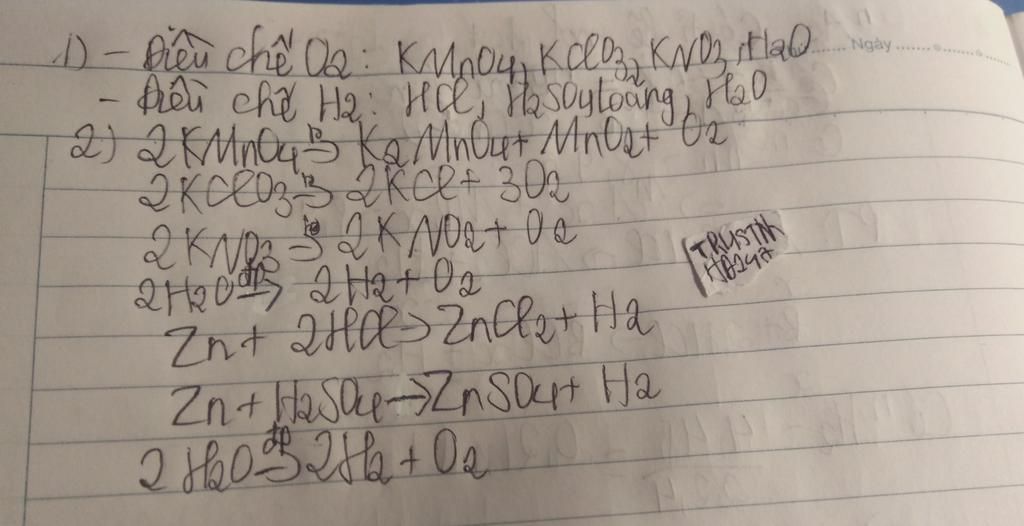 1) - Điều chế O2: KMnO4, KClO3, KNO3, H2O
Ngày
- Điều chế H2: HCl, H2SO4 loãng, H2O
2) 2KMnO4 -to-> K2MnO4 + MnO2 + O2
2KClO3 -to-> 2KCl + 3O2
2KNO3 -to-> 2KNO2 + O2
2H2O -đp-> 2H2 + O2
TRUSTNK
Zn + 2HCl -> ZnCl2 + H2
Zn + H2SO4 -> ZnSO4 + H2
2H2O -đp-> 2H2 + O2